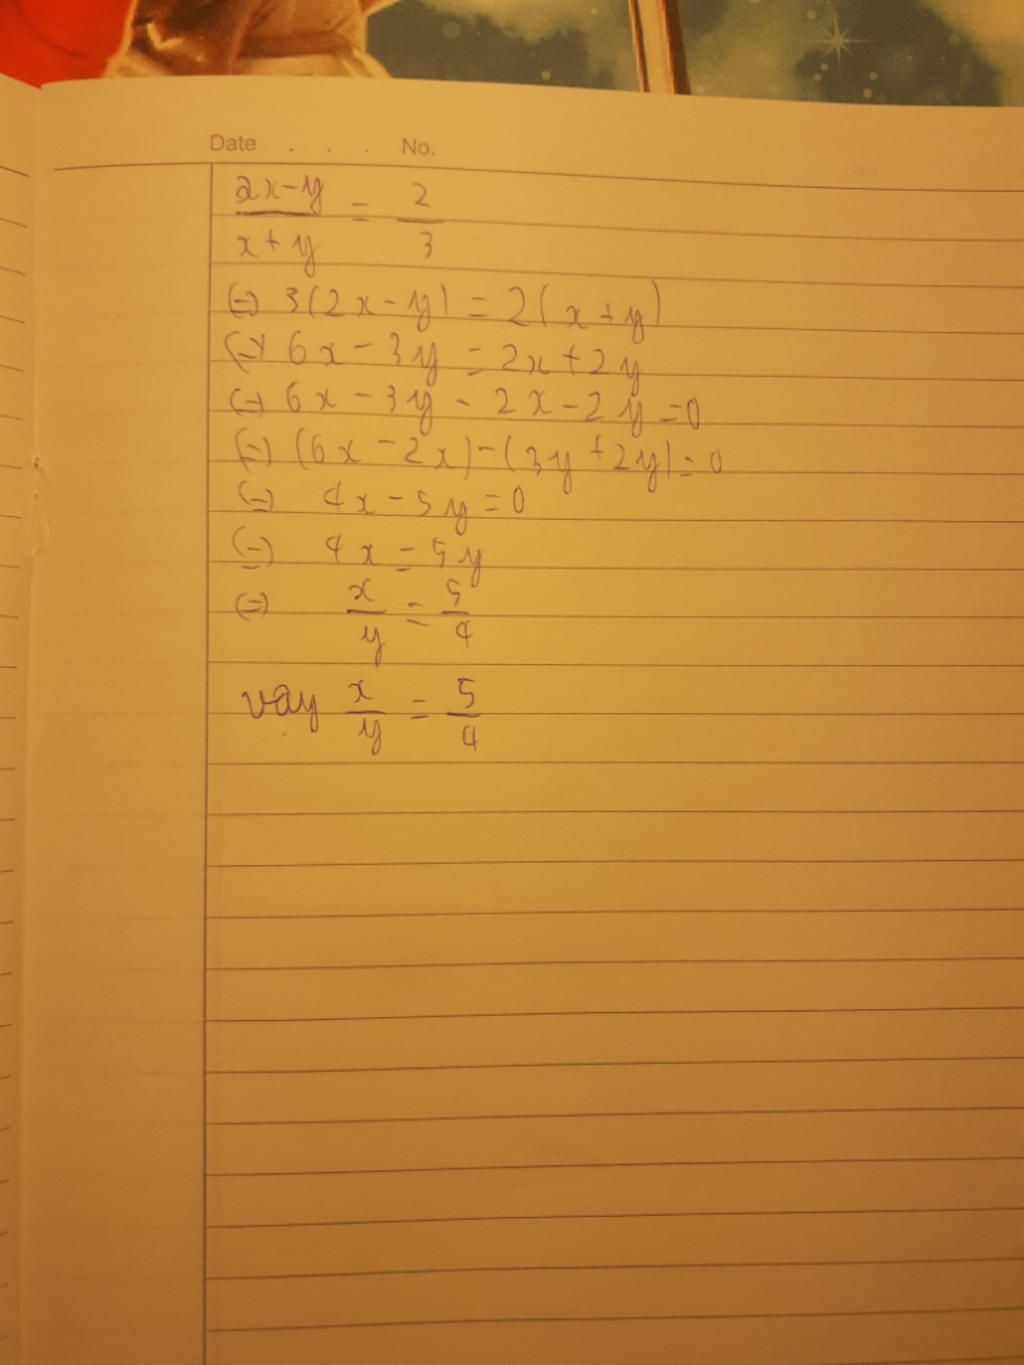 Date . . . No.
2x-y/x+y = 2/3
(=) 3(2x-y) = 2(x+y)
(=) 6x-3y = 2x+2y
(=) 6x-3y-2x-2y=0
(=) (6x-2x)-(3y+2y)=0
(=) 4x-5y=0
(=) 4x=5y
(=) x/y = 5/4
vậy x/y = 5/4